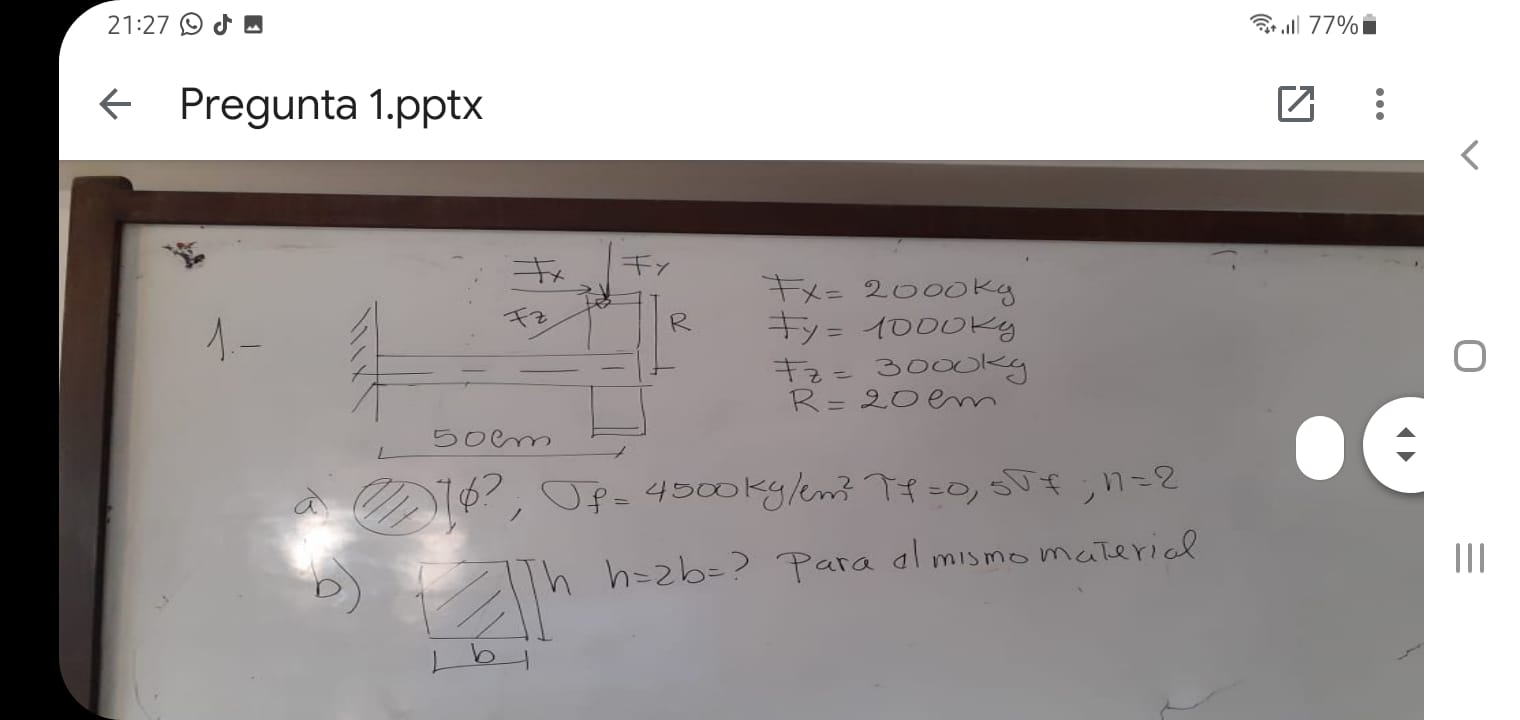 21:27 77%
Pregunta 1.pptx
Fx Fy
Fz
R
1.-
50cm
Fx= 2000kg
Fy= 1000kg
Fz= 3000kg
R= 20cm
a) ϕ?, σf= 4500kg/cm² τf=0,5σf ; n=2
b) h h=2b=? Para el mismo material
b